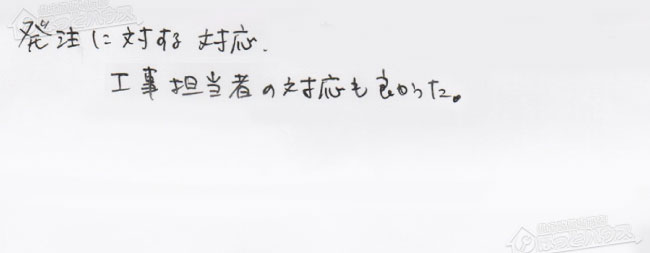 発注に対する対応.
工事担当者の対応も良かった。